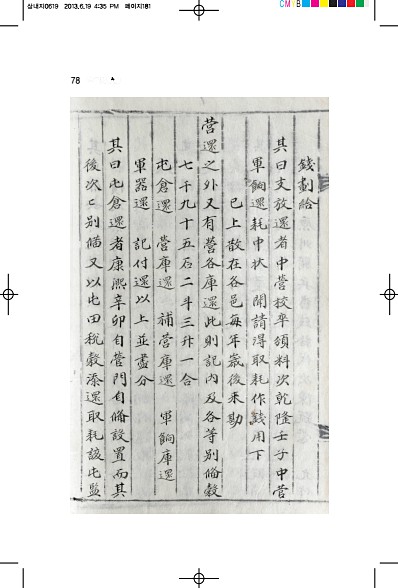 삼내지0619 2013.6.19 4:35 PM 페이지181
CMYB
78
錢劃給
其曰支放還者中營校卒領料次乾隆壬子中營
軍餉還耗中狀 開請得取耗作錢用下
已上散在各邑每年歲後来勘
營還之外又有營各庫還此則記內及各等別俻糓
七千九十五石二斗三升一合
屯倉還 營庫還 補營庫還 軍餉庫還
軍器還 記付還以上並盡分
其曰屯倉還者康熙辛卯自營門自俻設置而其
後次〻別俻又以屯田稅糓添還取耗該屯監